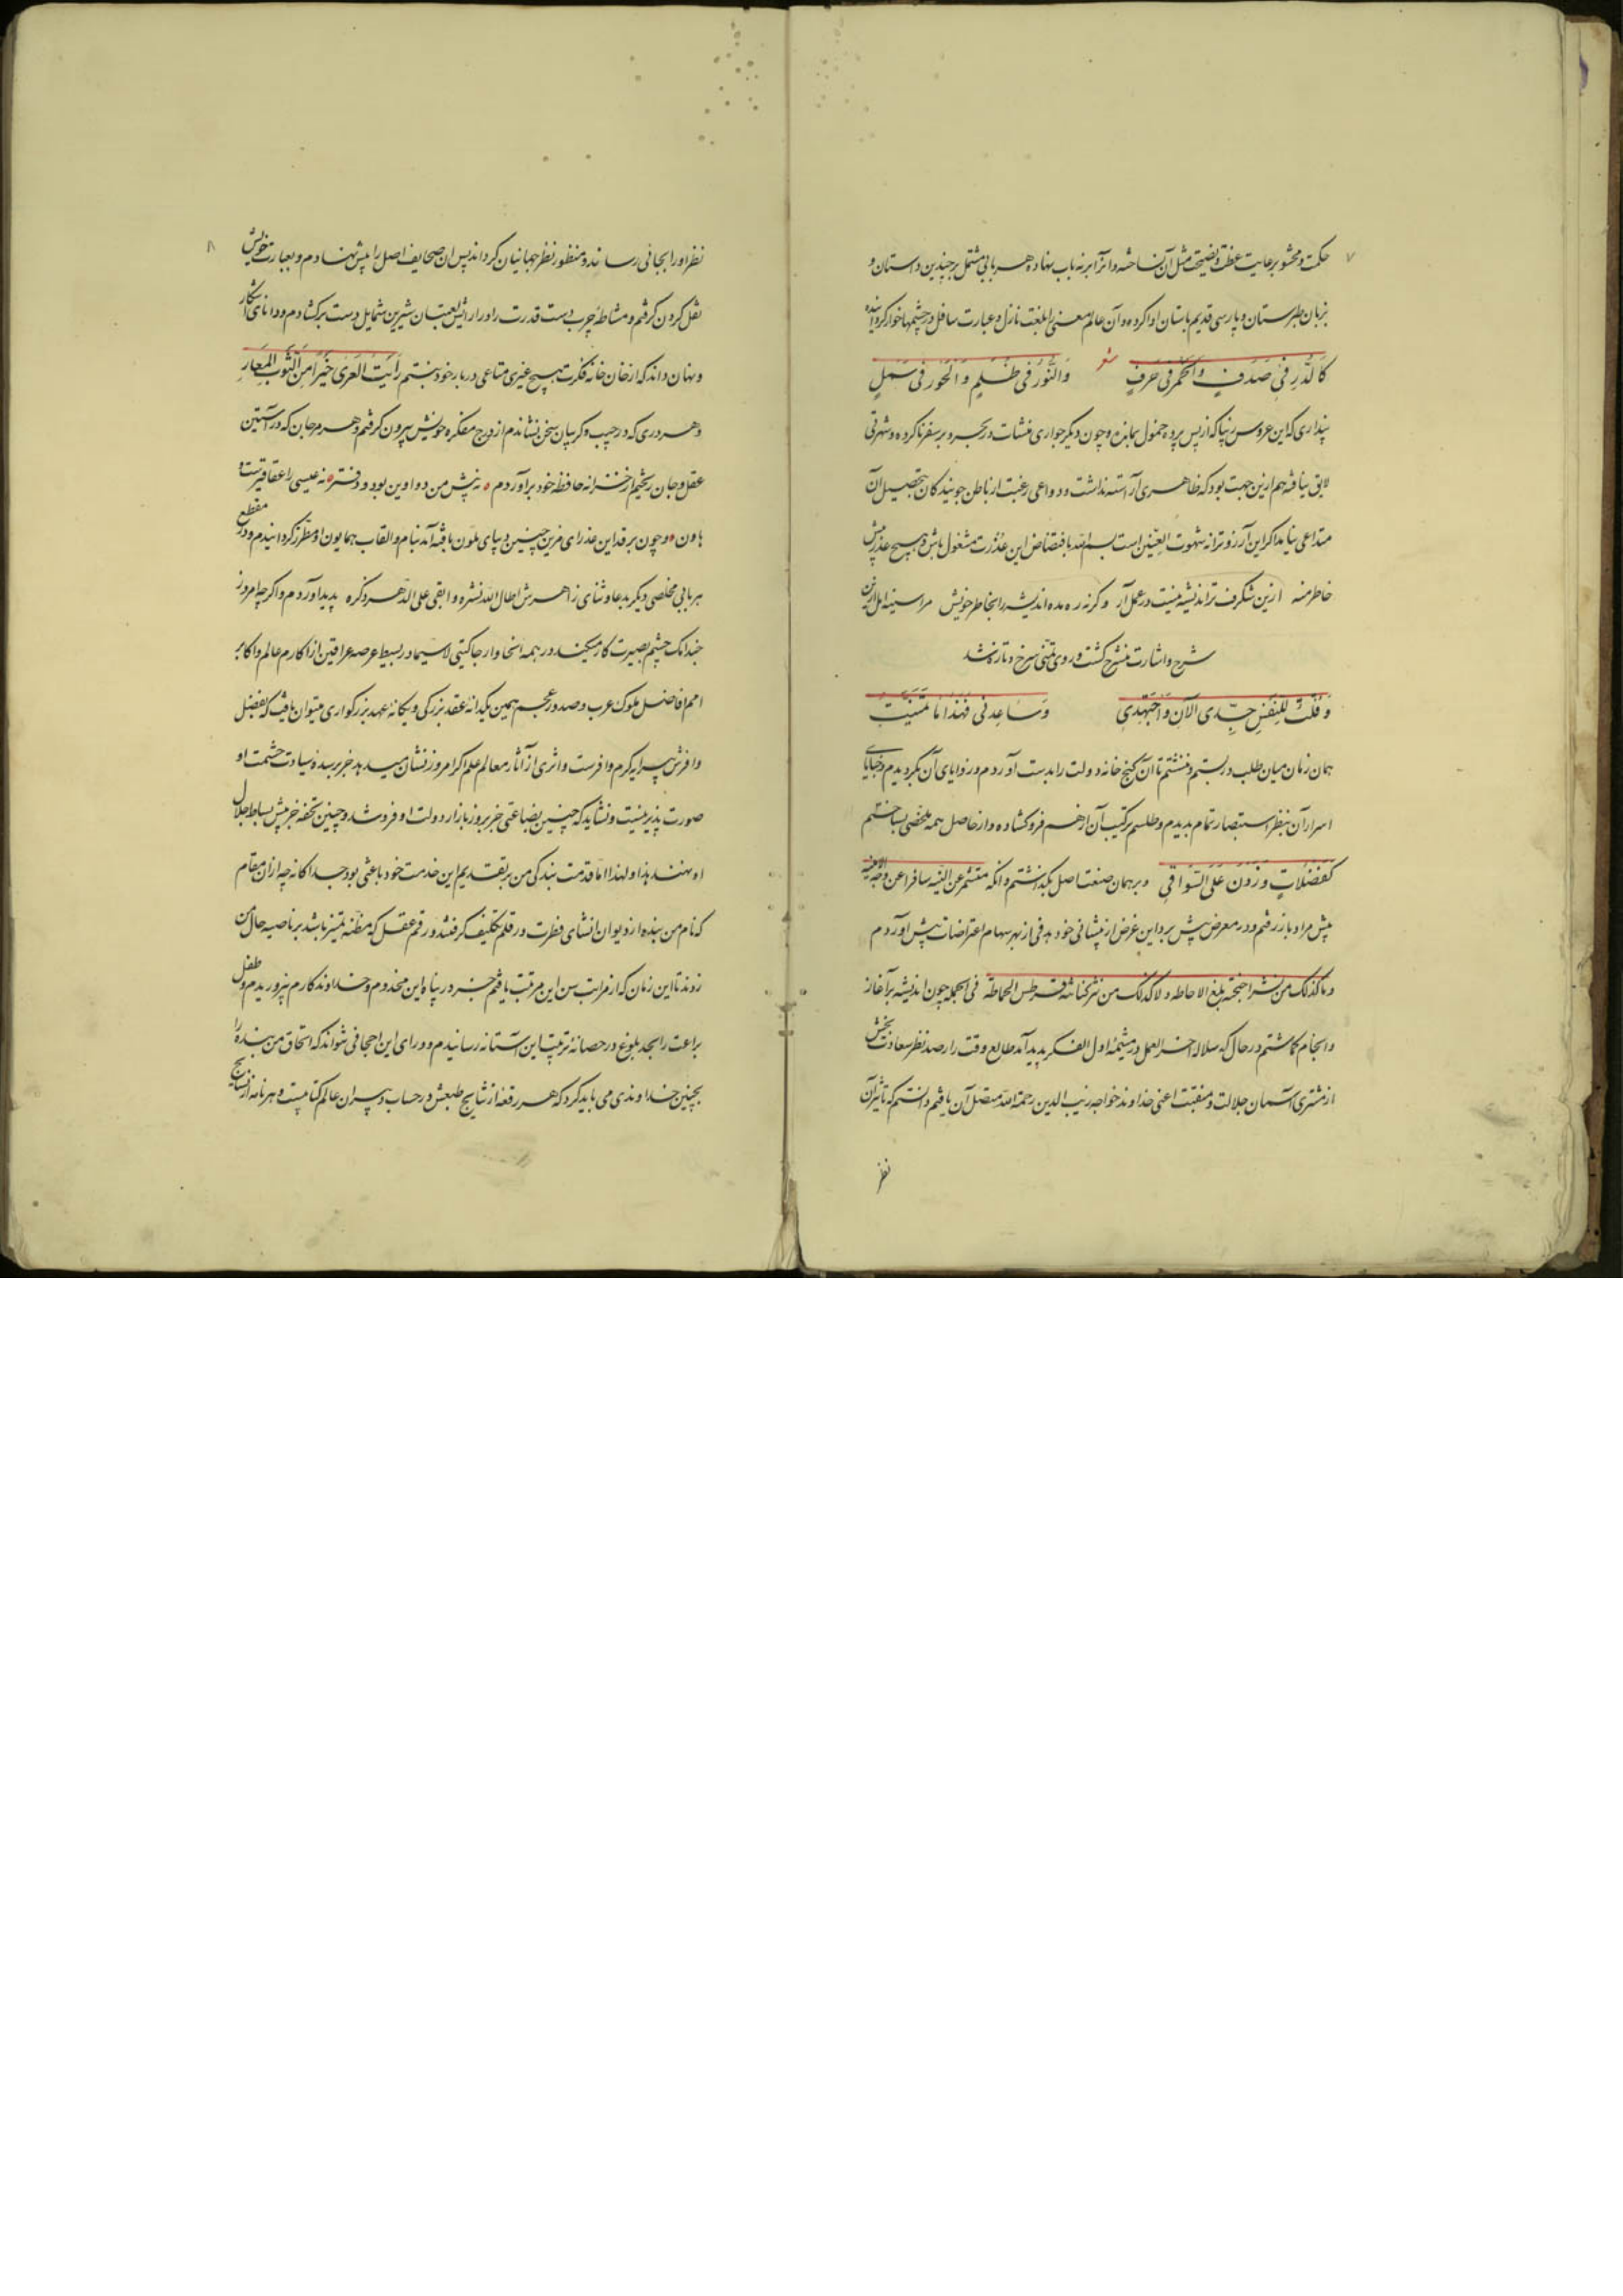 ۷
حکمت و محشو برعایت عظت و نصیحت مثل آن نساخته‌اند و آنرا بر نه باب نهاده هر بابی مشتمل بر چندین داستان و
بزبان طبرستان و پارسی قدیم باستان ادا کرده و آن عالم معنی را بلغت نازل و عبارت سافل در چشمها خوار گردانیده
شعر
کَالدُّرِ فی صَدَفٍ وَالخَمرِ فی خَزَفٍ وَالنُّورُ فی ظُلَمٍ وَالحُورُ فی سَمَلٍ
پنداری که این عروس زیبا که از پس پرده خمول بمانده و چون دیگر جواری منشآت در بحر و بر سفر ناکرده و شهرتی
لایق نیافته هم ازین جهت بود که ظاهری آراسته نداشت و دواعی رغبت از باطن جویندگان بتحصیل آن
متداعی نیامد اگر این آرزو ترا نه شهوت العنین است بسم الله بافتضاض این عذرت مشغول باش و هیچ عذر پیش
خاطر منه ازین شگرف تر اندیشه نیست در عمل آر و گرنه ره مده اندیشه را بخاطر خویش مرا سینه امل ازین
شرح و اشارت منشرح گشت و روی تمنی سرخ و تازه شد
وَ قُلتُ لِلنَّفسِ جِدّی الآنَ وَاجتَهِدی وَ ساعِدنی فَهٰذا ما تَمَنَّیتِ
همان زمان میان طلب دربستم و ننشستم تا آن گنج خانه دولت را بدست آوردم و زوایای آن بگردیدم و خبایای
اسرار آن بنظر استبصار تمام بدیدم و طلسم ترکیب آن از هم فرو گشاده و از حاصل همه ملخصی بساختم
کفضلات وزون علی السواقی و بر همان صنعت اصل بگذاشتم و آنکه متشم عن البقیة سافرا عن وجه الامنیة
پیش مراد باز رفتم و در معرض پیش برد این غرض از پیشانی خود هدفی از بهر سهام اعتراضات پیش آوردم
و ما کذلک من نشر اجنحته یبلغ الاحاطه و لا کذلک من نثر کنانته قرطس الحماطة فی الجمله چون اندیشه بر آغاز
و انجام گماشتم در حال که سلاله آخر العمل در مشیمه اول الفکر پدید آمد طالع وقت را رصد نظر سعادت بخش
از مشتری آسمان جلالت و منقبت اعنی خداوند خواجه زیب الدین رحمة الله متصل آن یافتم دانستم که تأثیر آن
نظر
۸
نظر او را بجائی رساند و منظور نظر جهانیان گرداند پس آن صحایف اصل را پیش نهادم و بعبارت خویش
نقل کردن گرفتم و مشاطه چرب دست قدرت را در آرایش لعبتان شیرین شمایل دست برگشادم و دانای آشکار
و نهان داند که از خان خانه فکرت هیچ غیری متاعی دربار خود نبستم رَأیتُ العُری خَیراً مِنَ الثَّوبِ المُعارِ
و هر دری که در جیب و گریبان سخن نشاندم از درج مفکره خویش بیرون گرفتم و هر مرجان که در آستین
عقل و جان ریختم از خزانه حافظه خود برآوردم نه پیش من دواوین بود و دفتر نه عیسی را عقاقیرست و
هاون و چون مرقد این عذرای مزین چنین دیبای ملون بافته آمد بنام و القاب همایون او مطرز گردانیدم و در مقطع
هر بابی مخلصی دیگر بدعا و ثنای زاهرش اطال الله نشره و ابقی علی الدهر ذکره پدید آوردم و اگر چه امروز
چندانک چشم بصیرت کار میکند در همه انحا و ارجا گیتی لاسیما در بسیط عرصه عراقین از اکارم عالم و اکابر
امم افاضل ملوک عرب و صدور عجم همین یگدانه عقد بزرگی و یگانه عهد بزرگواری میتوان یافت که بفضل
وافرش پیرایه کرم وافرست و اثری از آثار معالم علم اگر امروز نشان میدهد جز بر سده سیادت حشمت او
صورت پذیر نیست و نشاید که چنین بضاعتی جز بروز بازار دولت او فروشند و چنین تحفه جز پیش بساط جلال
او نهند هذا و لهذا اما قدمت بندگی من بتقدیم این خدمت خود باعثی بود جداگانه چه از آن مقام
که نام من بنده از دیوان انشای فطرت در قلم تکلیف گرفتند و رقم عقل که مظنه تمیز باشد بر ناصیه حال من
زدند تا این زمان که از مراتب سن این مرتبت یافتم جز در پناه این مخدوم و خداوند کارم نپروریدم و طفل
براعت را بجد بلوغ در حصانه تربیت این آستانه رسانیدم و ورای این احجافی نتواند که استحاق من بنده را
بچنین خداوندی می باید کرد که هر رقعه از نتایج طبعش در حساب دبیران عالم کتابیست و هر نامه از نسایج